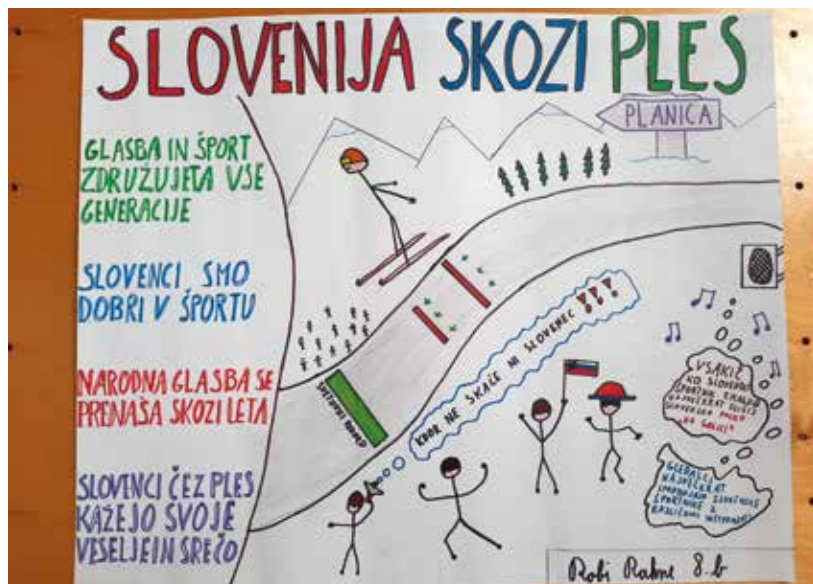 SLOVENIJA SKOZI PLES
PLANICA
GLASBA IN ŠPORT
ZDRUŽUJETA VSE
GENERACIJE
SLOVENCI SMO
DOBRI V ŠPORTU
NARODNA GLASBA SE
PRENAŠA SKOZI LETA
SLOVENCI ČEZ PLES
KAŽEJO SVOJE
VESELJE IN SREČO
SVETOVNI REKORD
KDOR NE SKAČE NI SLOVENEC !!!
VSAKIČ,
KO SLOVENSKI
NAJVEČKRAT SLIŠIŠ
SLOVENSKO
GLEDALCI
NAJVEČKRAT
SLOVENSKE
ŠPORTNIKE Z
RAZLIČNIMI
Robi Rahne 8.b